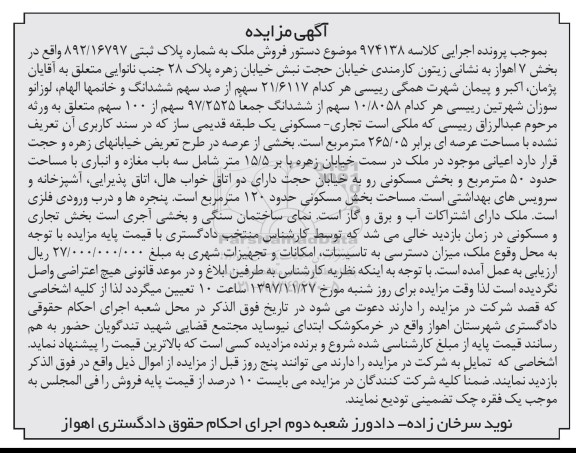 آگهی مزایده
بموجب پرونده اجرایی کلاسه ۹۷۴۱۳۸ موضوع دستور فروش ملک به شماره پلاک ثبتی ۸۹۲/۱۶۷۹۷ واقع در
بخش ۷ اهواز به نشانی زیتون کارمندی خیابان حجت نبش خیابان زهره پلاک ۲۸ جنب نانوایی متعلق به آقایان
پژمان، اکبر و پیمان شهرت همگی رییسی هر کدام ۲۱/۶۱۱۷ سهم از صد سهم ششدانگ و خانمها الهام، لوزانو
سوزان شهرتین رییسی هر کدام ۱۰/۸۰۵۸ سهم از ششدانگ جمعا ۹۷/۲۵۲۵ سهم از ۱۰۰ سهم متعلق به ورثه
مرحوم عبدالرزاق رییسی که ملکی است تجاری- مسکونی یک طبقه قدیمی ساز که در سند کاربری آن تعریف
نشده با مساحت عرصه ای برابر ۲۶۵/۰۵ مترمربع است. بخشی از عرصه در طرح تعریض خیابانهای زهره و حجت
قرار دارد اعیانی موجود در ملک در سمت خیابان زهره با بر ۱۵/۵ متر شامل سه باب مغازه و انباری با مساحت
حدود ۵۰ مترمربع و بخش مسکونی رو به خیابان حجت دارای دو اتاق خواب هال، اتاق پذیرایی، آشپزخانه و
سرویس های بهداشتی است. مساحت بخش مسکونی حدود ۱۲۰ مترمربع است. پنجره ها و درب ورودی فلزی
است. ملک دارای اشتراکات آب و برق و گاز است. نمای ساختمان سنگی و بخشی آجری است بخش تجاری
و مسکونی در زمان بازدید خالی می شد که توسط کارشناس منتخب دادگستری با قیمت پایه مزایده با توجه
به محل وقوع ملک، میزان دسترسی به تاسیسات، امکانات و تجهیزات شهری به مبلغ ۲۷/۰۰۰/۰۰۰/۰۰۰ ریال
ارزیابی به عمل آمده است. با توجه به اینکه نظریه کارشناس به طرفین ابلاغ و در موعد قانونی هیچ اعتراضی واصل
نگردیده است لذا وقت مزایده برای روز شنبه مورخ ۱۳۹۷/۱۱/۲۷ ساعت ۱۰ تعیین میگردد لذا از کلیه اشخاصی
که قصد شرکت در مزایده را دارند دعوت می شود در تاریخ فوق الذکر در محل شعبه اجرای احکام حقوقی
دادگستری شهرستان اهواز واقع در خرمکوشک ابتدای نیوساید مجتمع قضایی شهید تندگویان حضور به هم
رسانند قیمت پایه از مبلغ کارشناسی شده شروع و برنده مزایده کسی است که بالاترین قیمت را پیشنهاد نماید.
اشخاصی که تمایل به شرکت در مزایده را دارند می توانند پنج روز قبل از مزایده از اموال ذیل واقع در فوق الذکر
بازدید نمایند. ضمنا کلیه شرکت کنندگان در مزایده می بایست ۱۰ درصد از قیمت پایه فروش را فی المجلس به
موجب یک فقره چک تضمینی تودیع نمایند.
نوید سرخان زاده- دادورز شعبه دوم اجرای احکام حقوق دادگستری اهواز